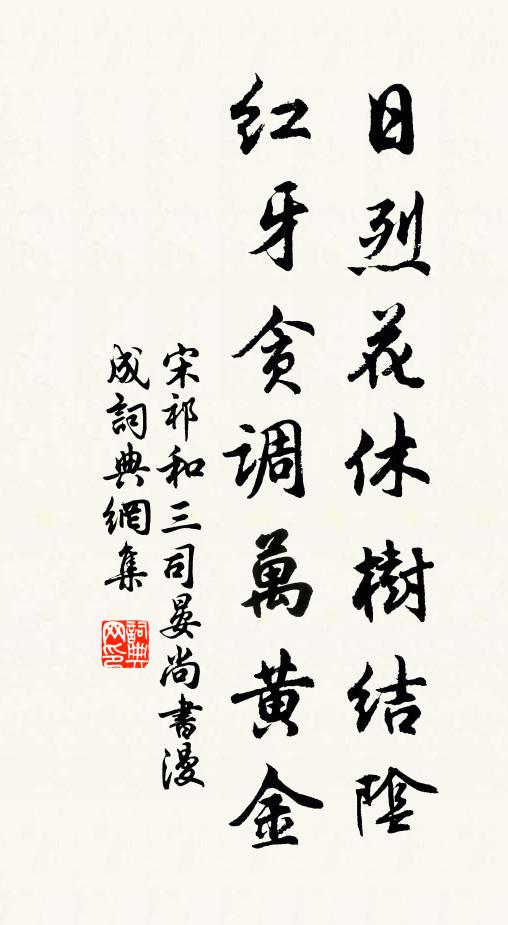 日烈花休樹結陰
紅牙貪調萬黃金
宋祁和三司晏尚書漫
成詞典網集
詞典网印